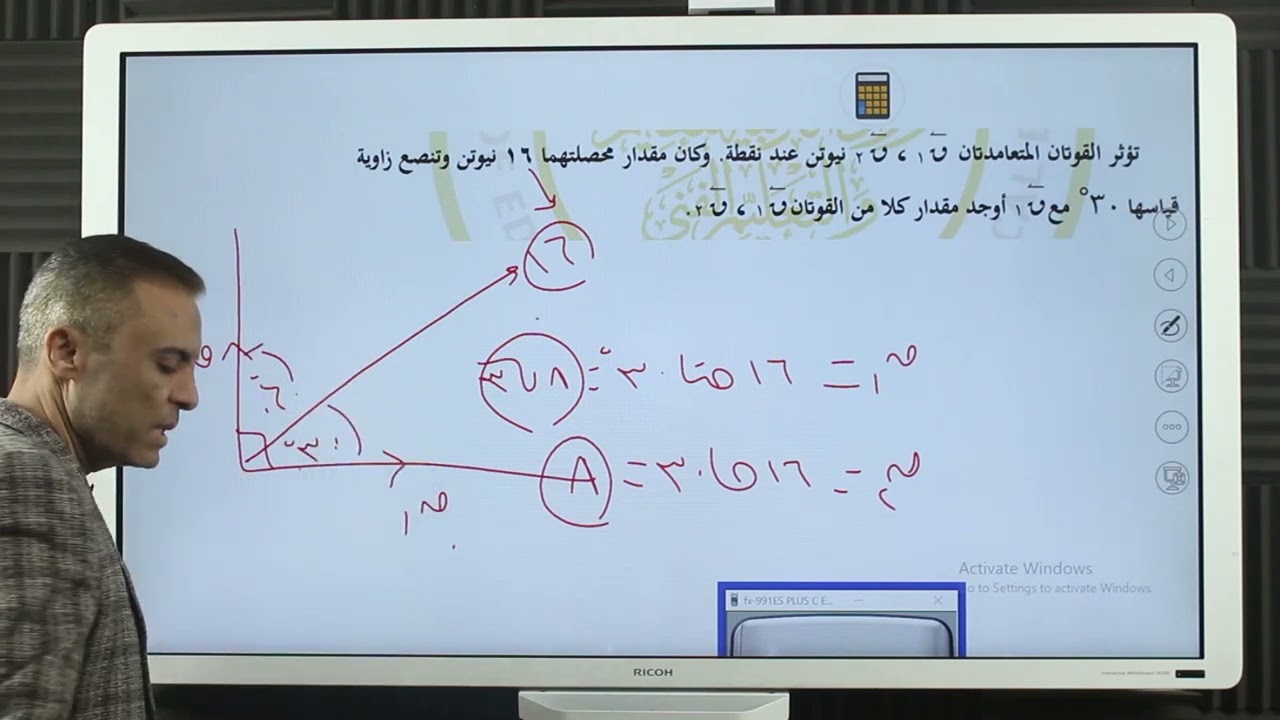 تؤثر القوتان المتعامدتان ق١ ، ق٢ نيوتن عند نقطة. وكان مقدار محصلتهما ١٦ نيوتن وتنصع زاوية
قياسها ٣٠° مع ق١ أوجد مقدار كلا من القوتان ق١ ، ق٢.
١٦
ق١ = ١٦ حتا ٣٠° = ٨√٣
٦٠°
٣٠°
ق٢ = ١٦ حا ٣٠ = ٨
ق١
Activate Windows
Go to Settings to activate Windows.
fx-991ES PLUS C E...
RICOH